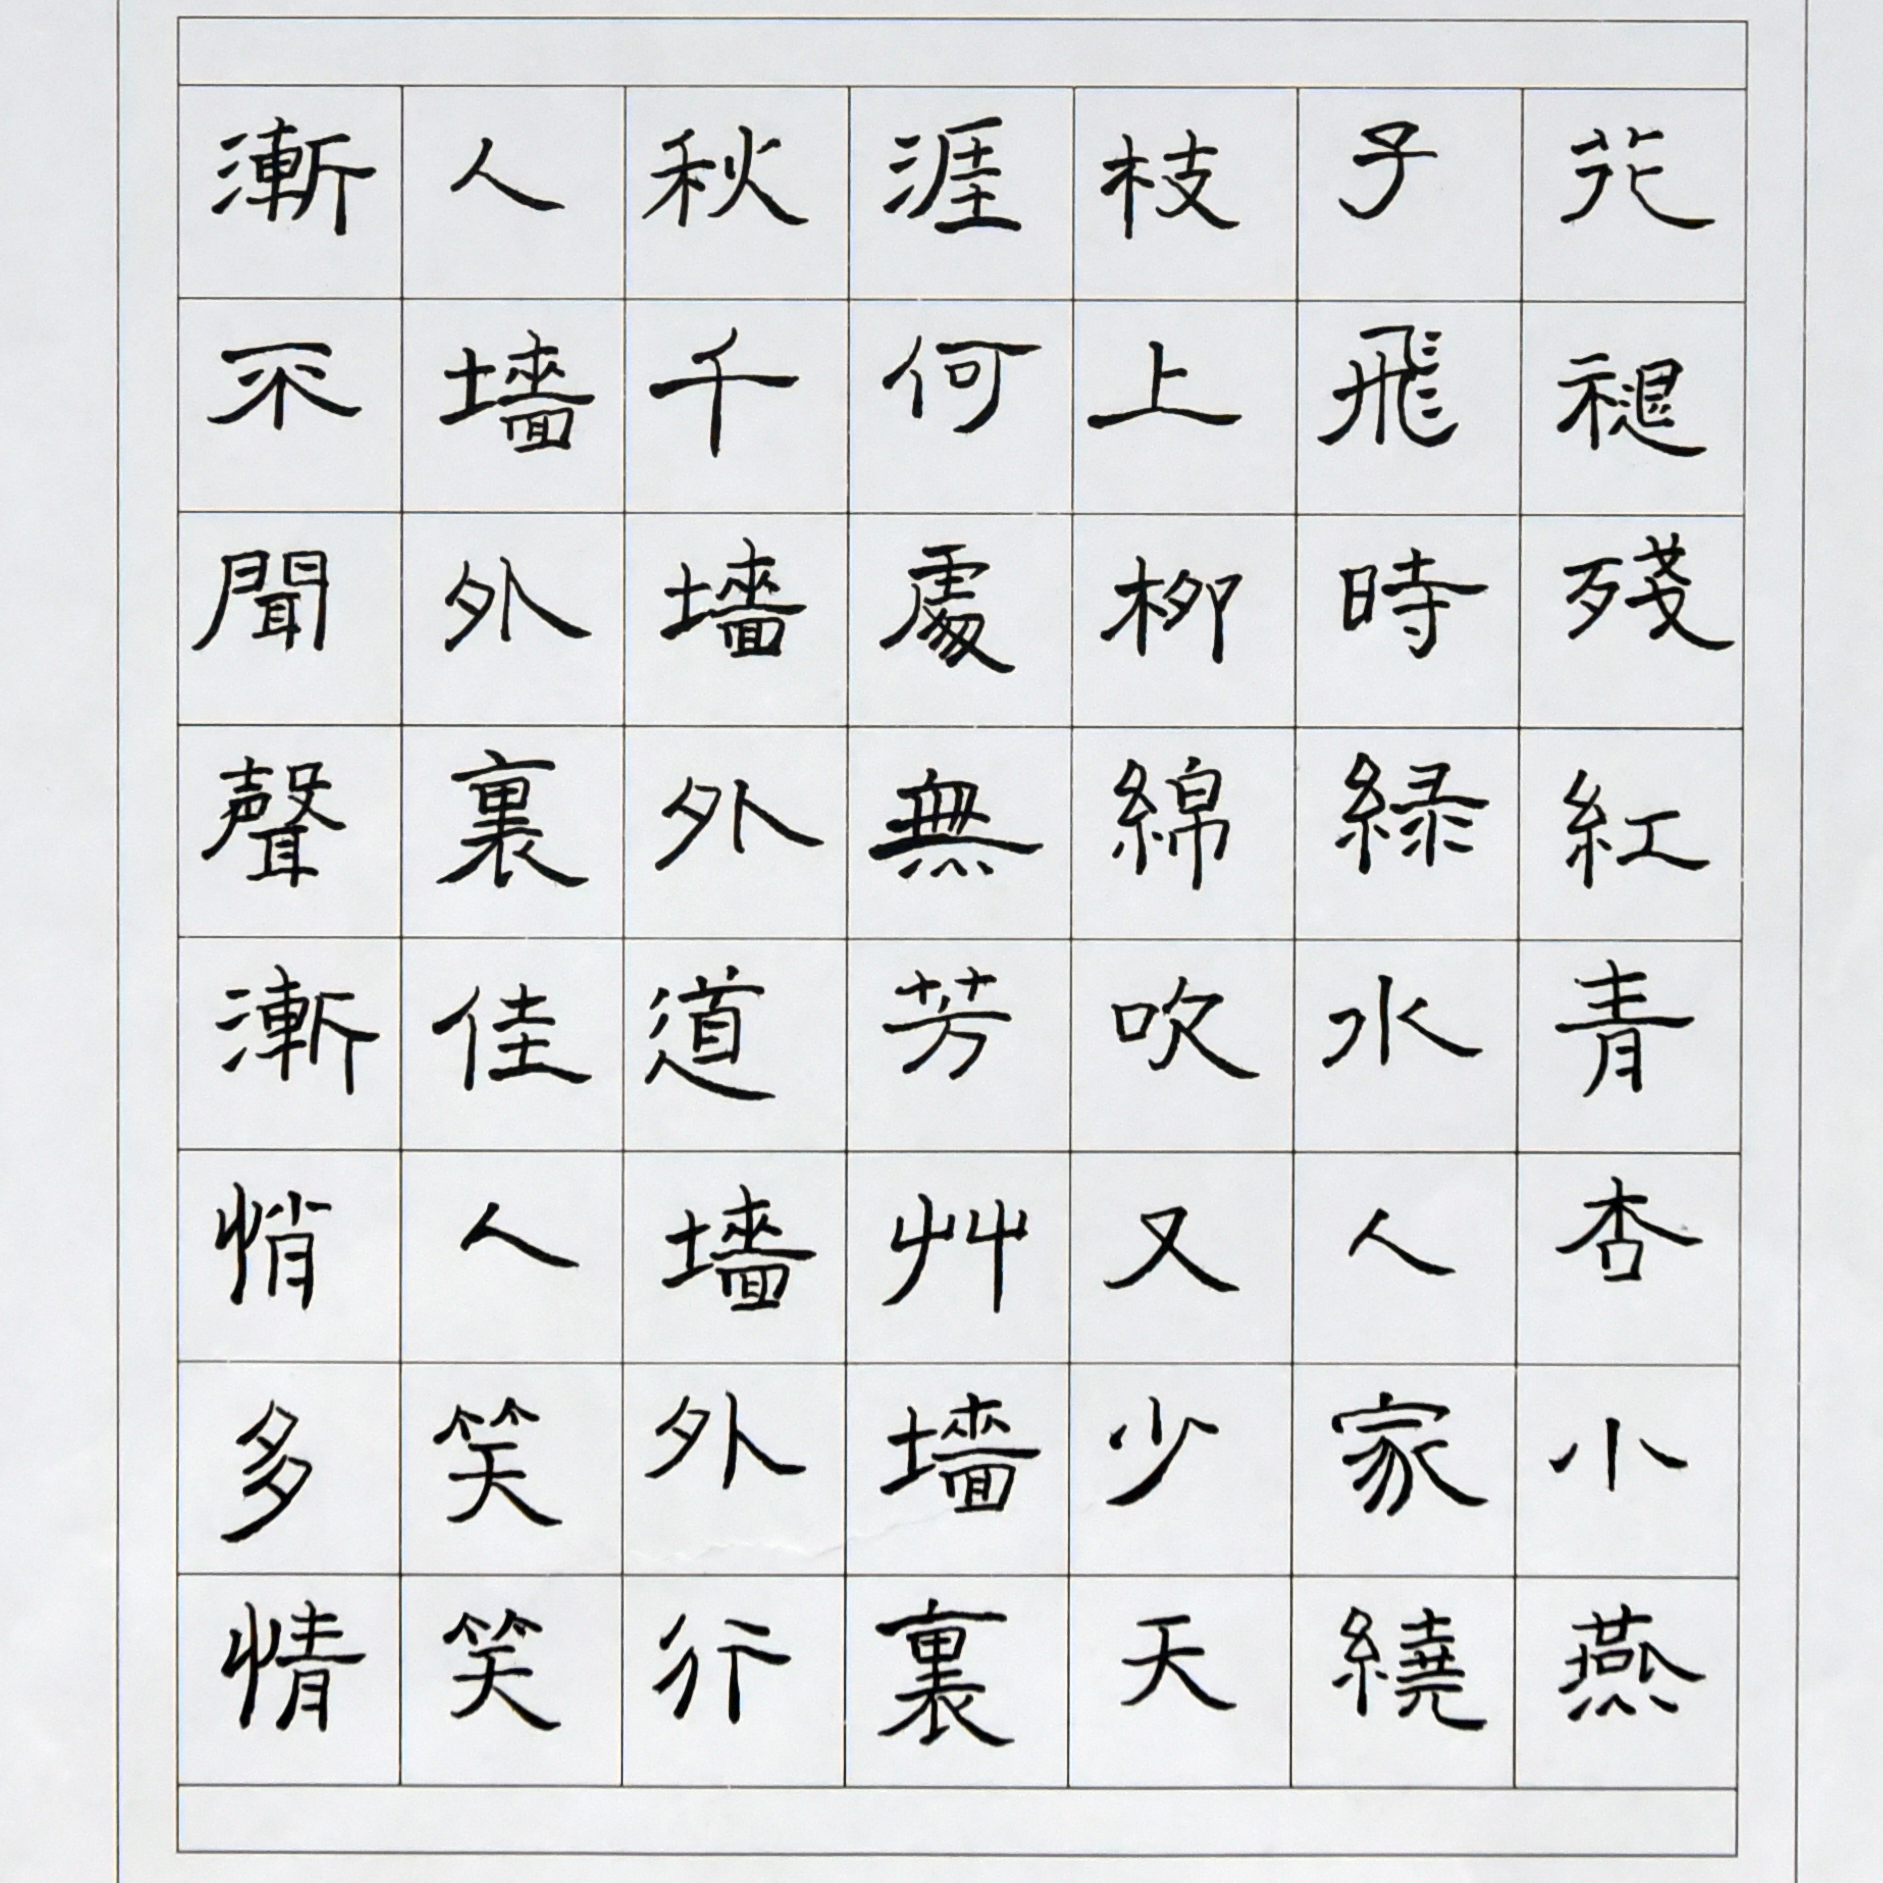 花褪殘紅青杏小燕
子飛時緑水人家繞
枝上柳綿吹又少天
涯何處無芳艸墻裏
秋千墻外道墻外行
人墻外裏佳人笑笑
漸不聞聲漸悄多情